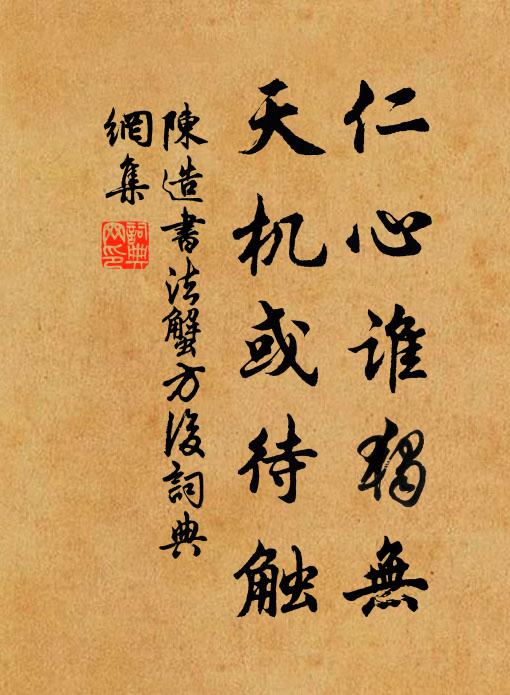 仁心谁獨無
天机或待触
陳造書法蟹方後詞典
網集
詞典網印